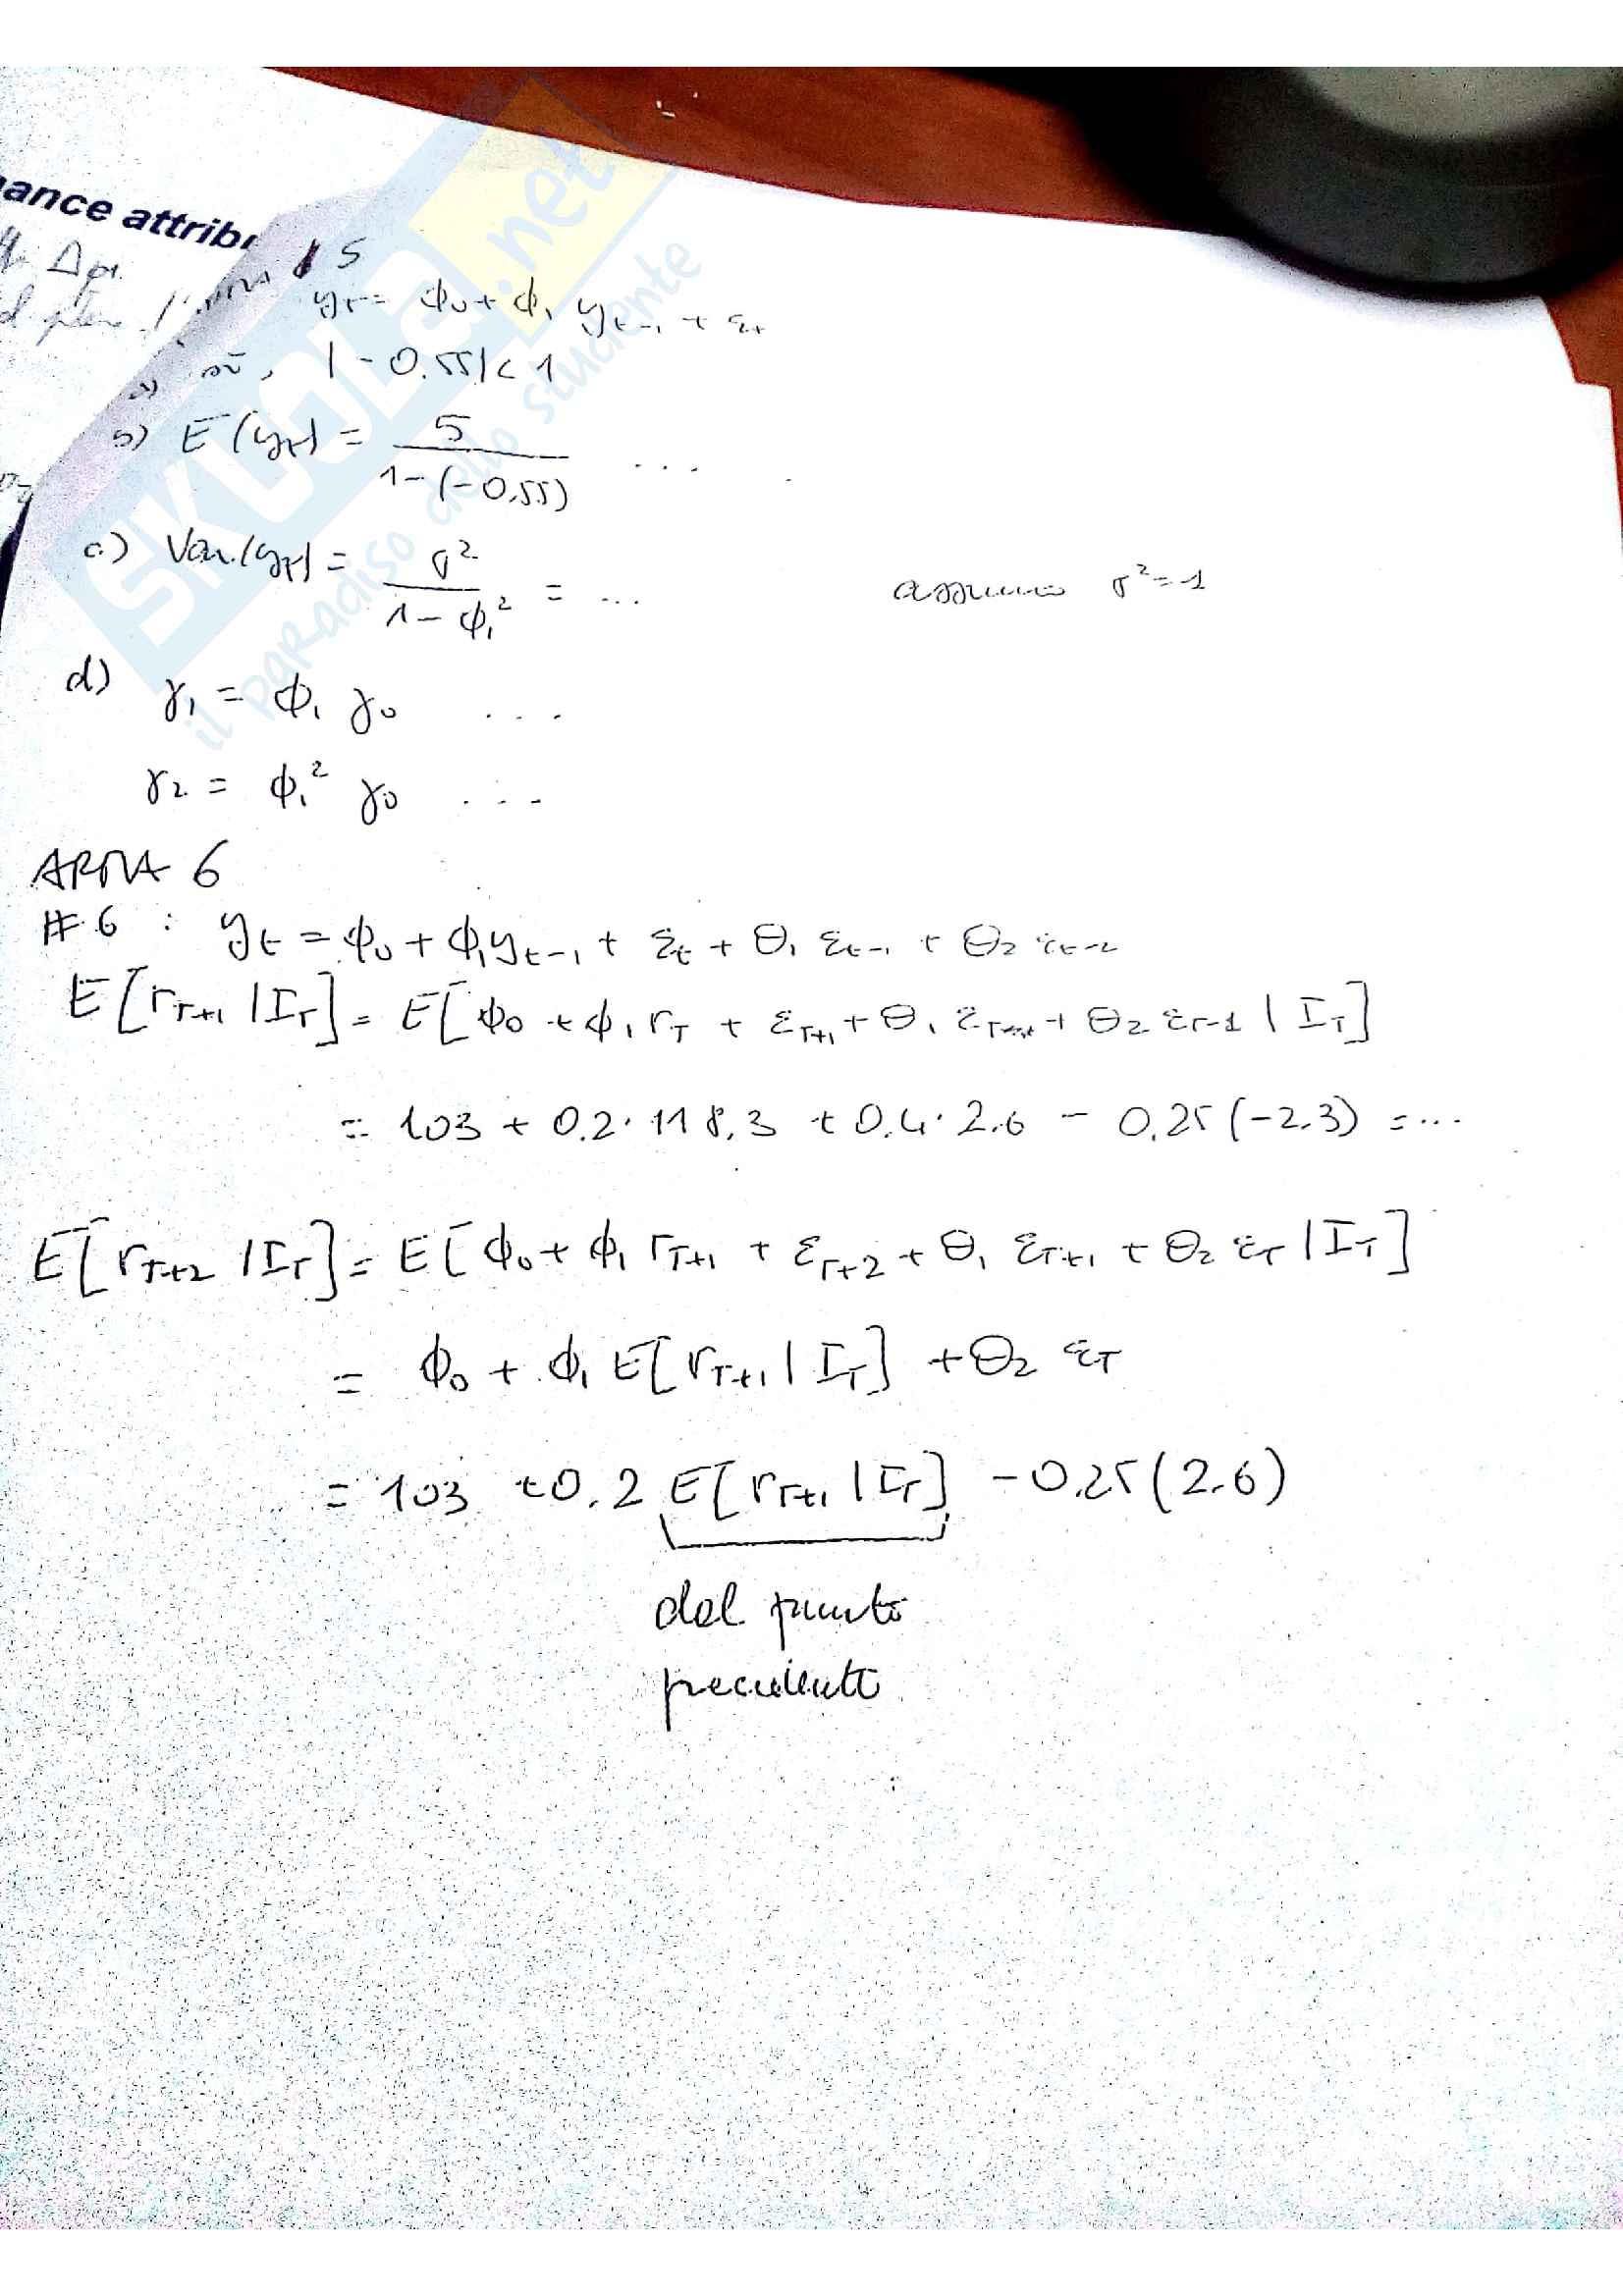 ance attribu
Δpt
ARMA 5
yt = ϕ0 + ϕ1 yt-1 + εt
a) sì, |-0.55| < 1
b) E(yt) = 5 / 1-(-0,55) ...
c) Var(yt) = σ² / 1-ϕ1² = ... assumo σ²=1
d) γ1 = ϕ1 γ0 ...
γ2 = ϕ1² γ0 ...
ARMA 6
#6 : yt = ϕ0 + ϕ1 yt-1 + εt + θ1 εt-1 + θ2 εt-2
E[rT+1 | IT] = E[ϕ0 + ϕ1 rT + εT+1 + θ1 εT + θ2 εT-1 | IT]
= 103 + 0.2 · 118,3 + 0.4 · 2.6 - 0.25 (-2.3) = ...
E[rT+2 | IT] = E[ϕ0 + ϕ1 rT+1 + εT+2 + θ1 εT+1 + θ2 εT | IT]
= ϕ0 + ϕ1 E[rT+1 | IT] + θ2 εT
= 103 + 0.2 E[rT+1 | IT] - 0.25 (2.6)
dal punto
precedente
SKUOLA.net
il paradiso dello studente